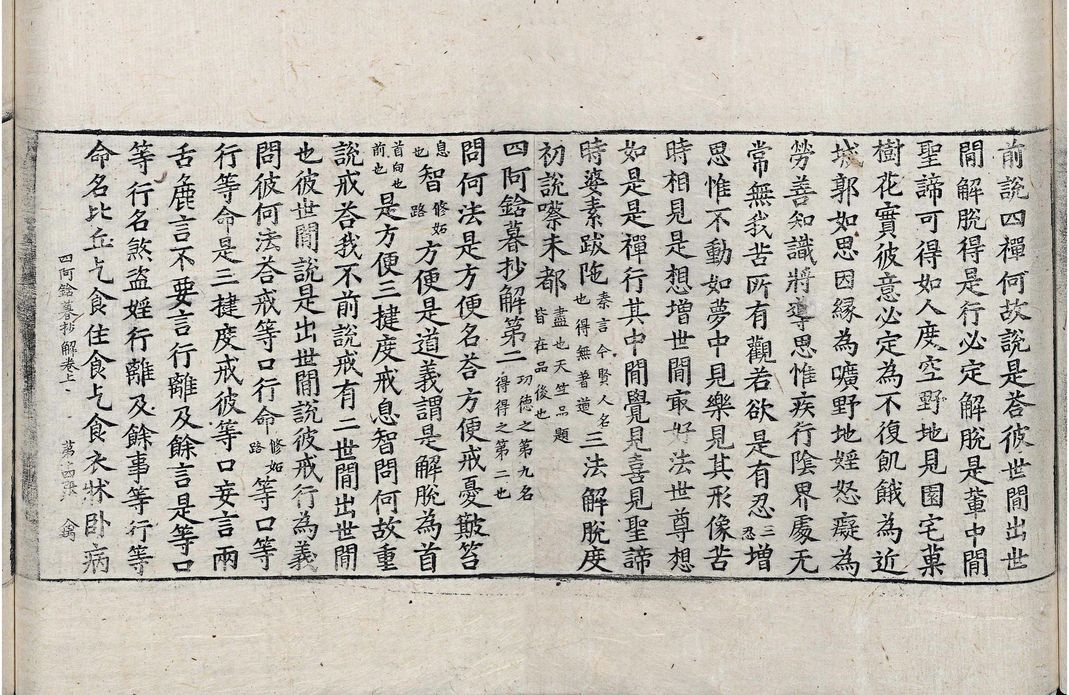 前說四禪何故說是荅彼世閒出世
閒解脫得是行必定解脫是輩中閒
聖諦可得如人度空野地見園宅菓
樹花實彼意必定為不復飢餓為近
城郭如思因縁為曠野地婬怒癡為
勞善知識將導思惟疾行陰界處无
常無我苦所有觀若欲是有忍三忍增
思惟不動如夢中見樂見其形像苦
時相見是想增世閒㝡好法世尊想
如是是禪行其中閒覺見喜見聖諦
時婆素跋陁秦言今賢人名也得無著道三法解脫度
初說嚓末都盡也天竺品題皆在品後也
四阿鋡暮抄解第二功德之第九名得得之第二也
問何法是方便名荅方便戒憂䟫笞
息也智修妬路方便是道義謂是解脫為首
首向也前也是方便三揵度戒息智問何故重
說戒荅我不前說戒有二世閒出世閒
也彼世閒說是出世閒說彼戒行為義
問彼何法荅戒等口行命修妬路等口等
行等命是三揵度戒彼等口妄言兩
舌麁言不要言行離及餘言是等口
等行名煞盜婬行離及餘事等行等
命名比丘乞食住食乞食衣牀卧病
四阿鋡暮抄解卷上 第卌張 禽